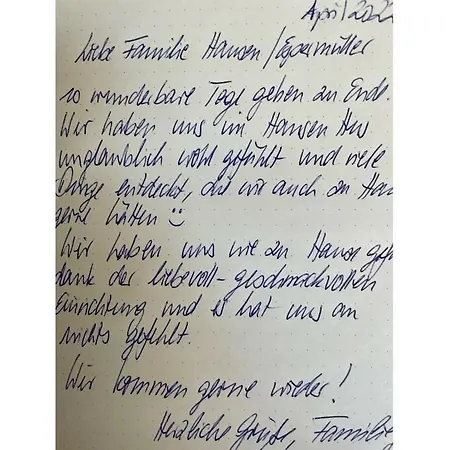 April 2022
Liebe Familie Hansen /
10 wunderbare Tage gehen zu Ende.
Wir haben uns im Hansen Hus
unglaublich wohl gefühlt und viele
Dinge entdeckt, die wir auch zu Hau
gerne hätten ☺
Wir haben uns wie zu Hause gefü
dank der liebevoll-geschmackvollen
Einrichtung und es hat uns an
nichts gefehlt.
Wir kommen gerne wieder!
Herzliche Grüße, Familie